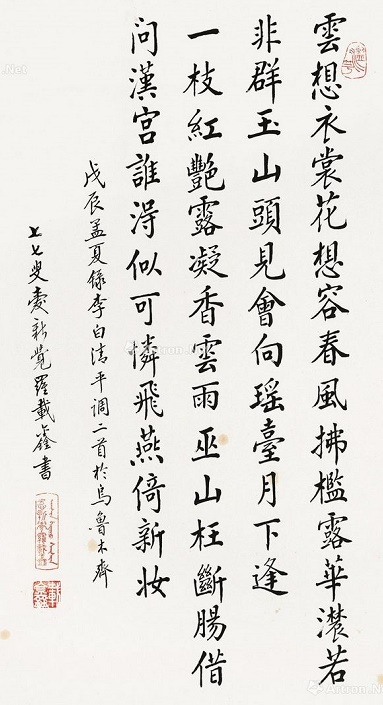 雲想衣裳花想容春風拂檻露華濃若
非群玉山頭見會向瑤臺月下逢
一枝紅艷露凝香雲雨巫山枉斷腸借
问漢宫誰得似可憐飛燕倚新妆
戊辰孟夏録李白清平调二首於烏魯木齊
七七叟愛新覺羅載鑫書
Artron.Net